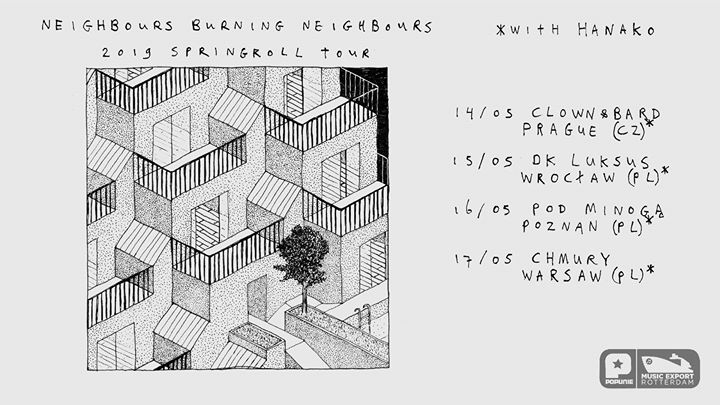 NEIGHBOURS BURNING NEIGHBOURS
2019 SPRINGROLL TOUR
*WITH HANAKO
14/05 CLOWN&BARD
PRAGUE (CZ)*
15/05 DK LUKSUS
WROCŁAW (PL)*
16/05 POD MINOGĄ
POZNAN (PL)*
17/05 CHMURY
WARSAW (PL)*
POPUNIE
MUSIC EXPORT
ROTTERDAM